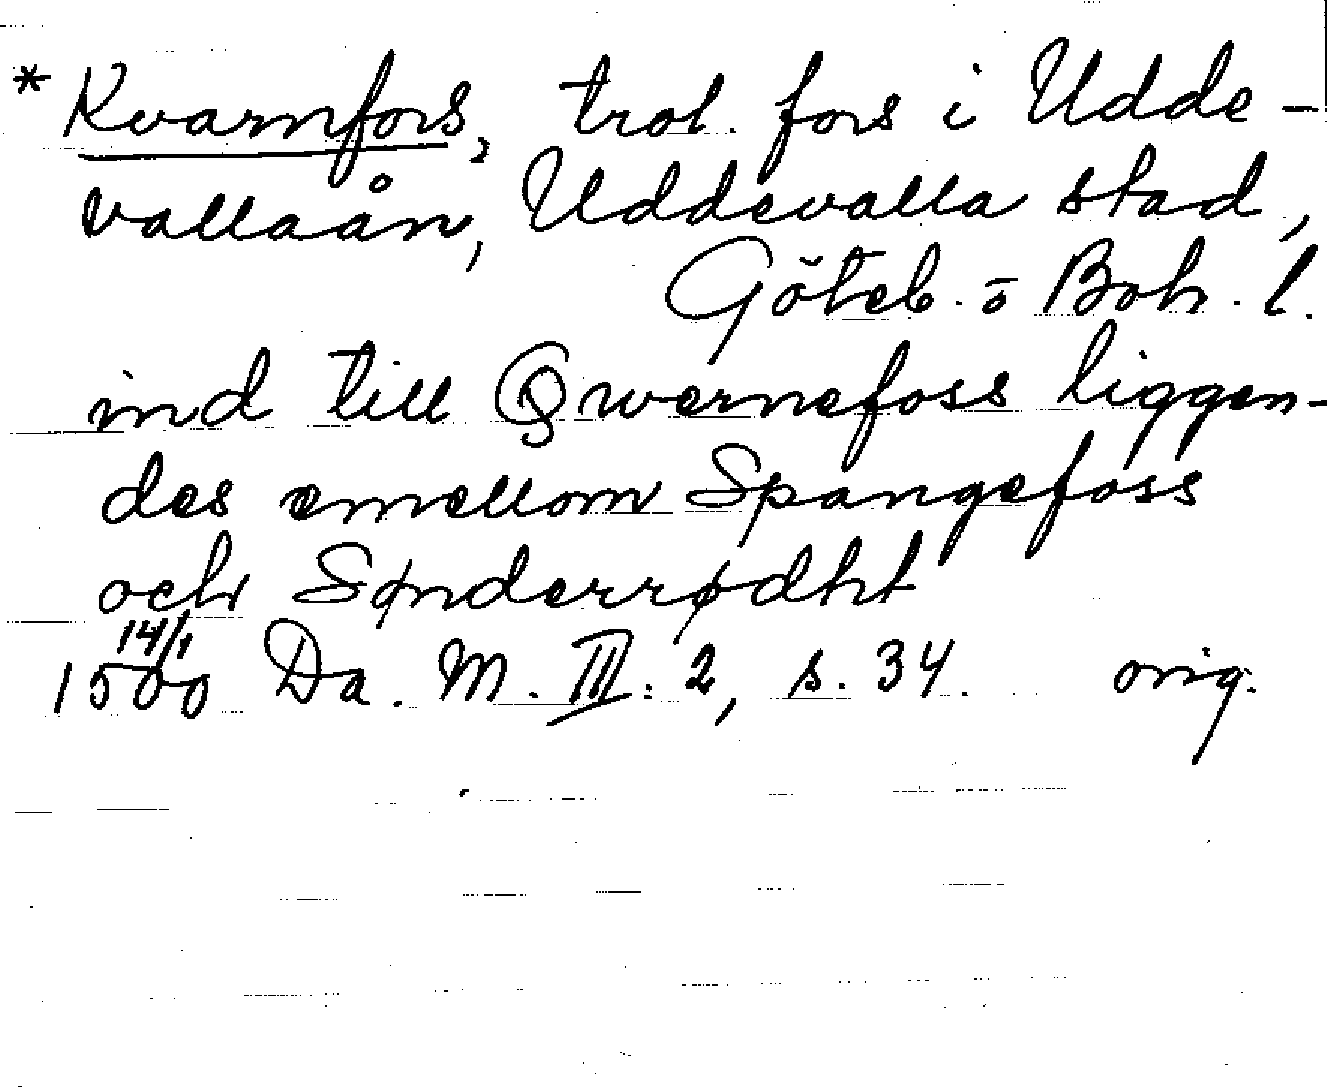 * Kvarnfors, trol. fors i Udde-
vallaån, Uddevalla stad,
Göteb. o Boh. l.
ind till Qwernefoss liggen-
des emellom Spangefoss
och Sønderrødht
14/1
1500 Da. M. III: 2, s. 34. orig.